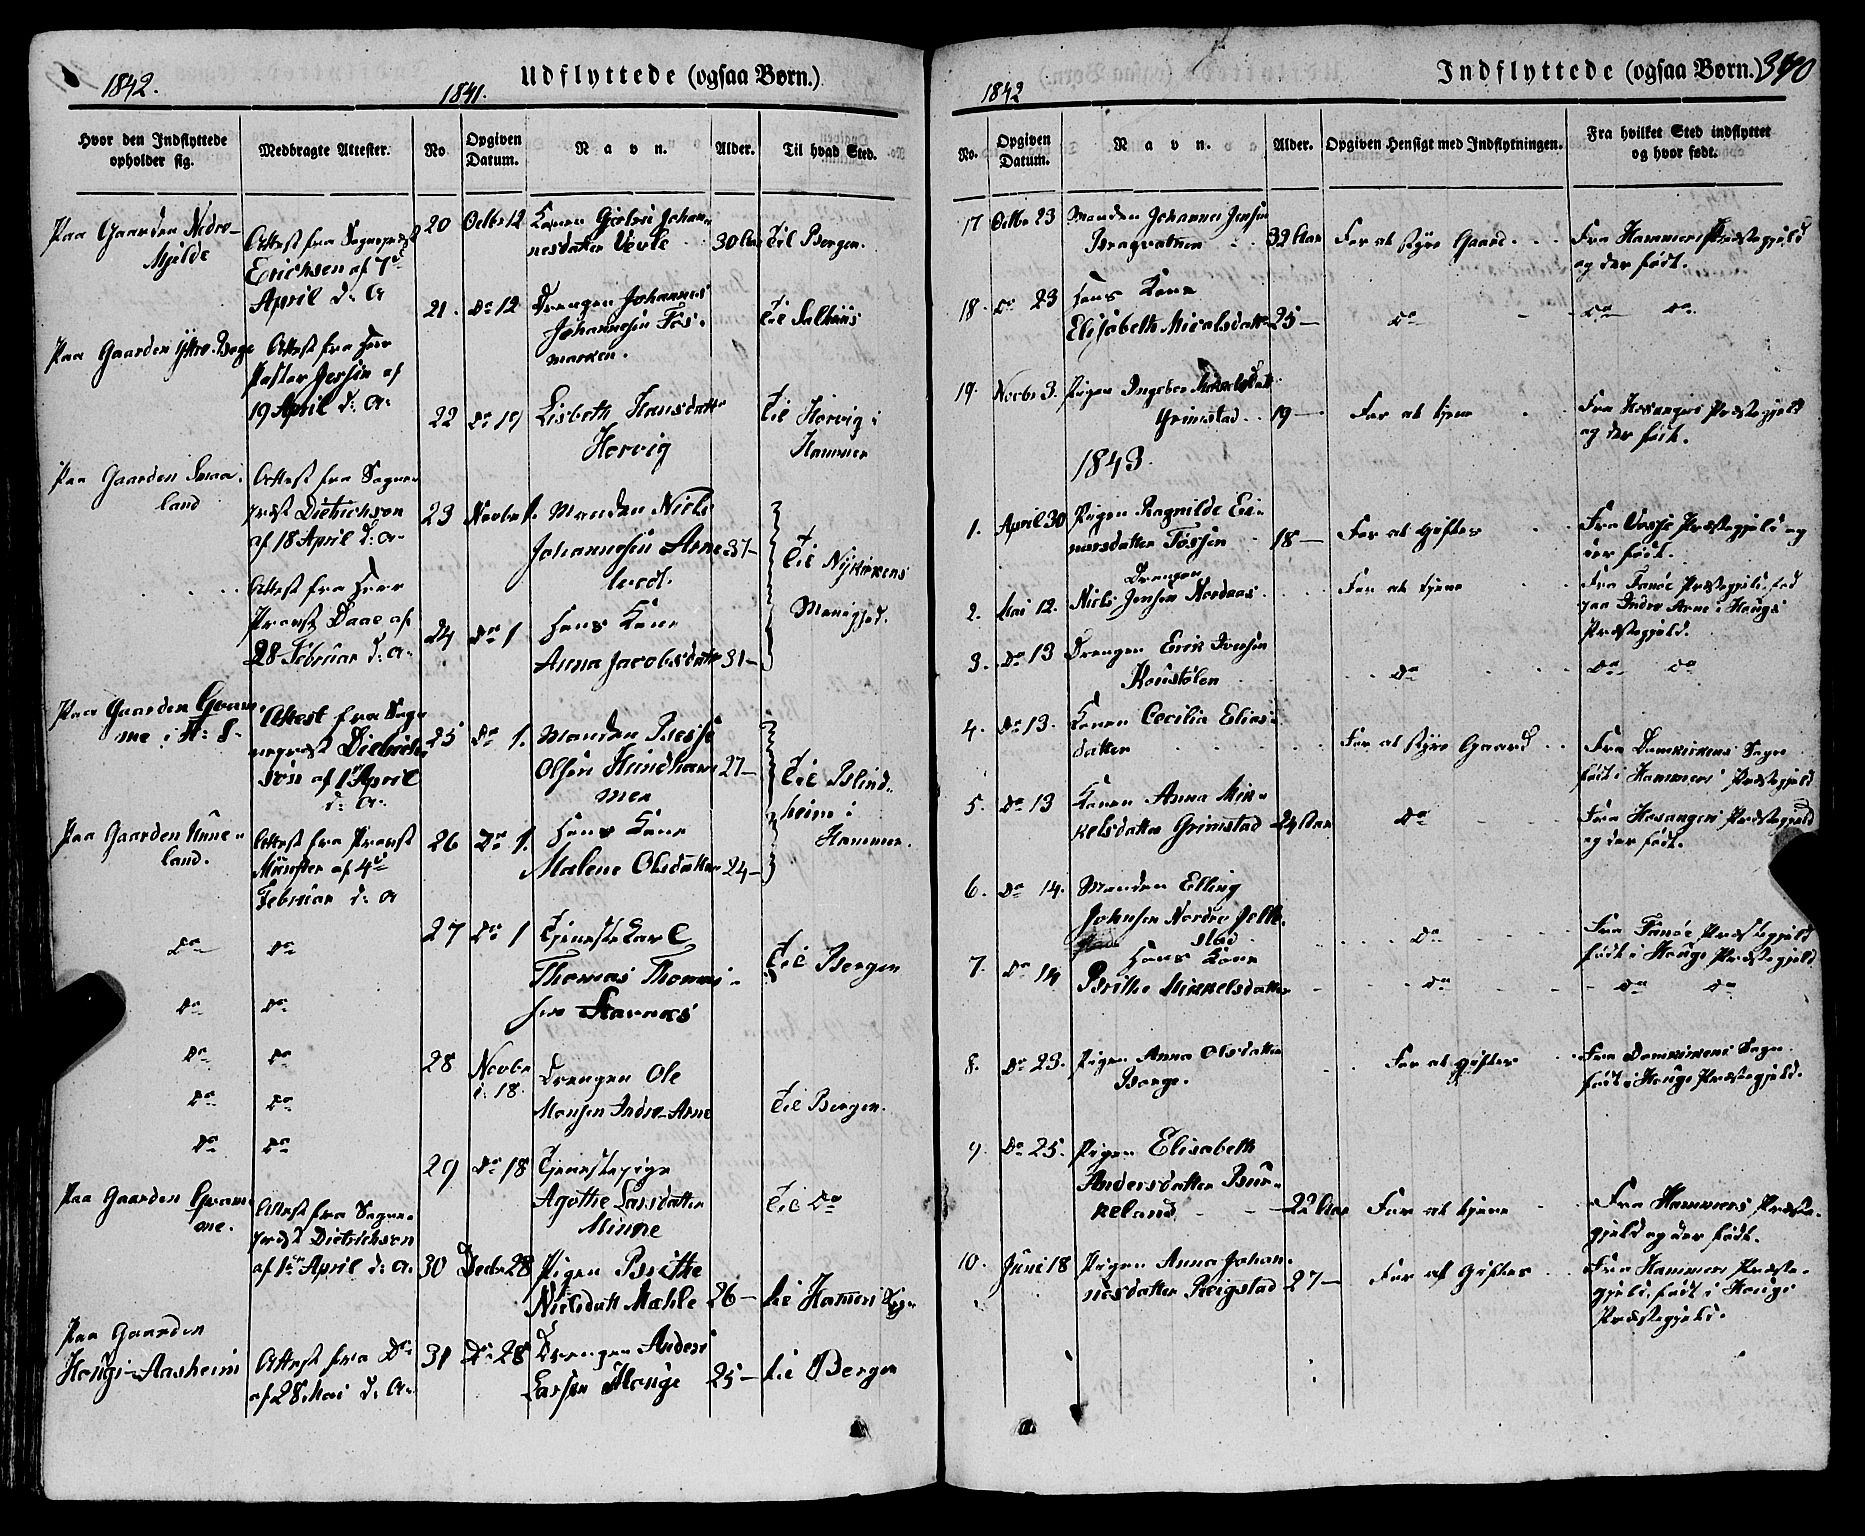 1842.
1841.
Udflyttede (ogsaa Børn.)
Hvor den Indflyttede
opholder sig.
Medbragte Attester.
No
Opgiven
Datum.
Navn.
Alder.
Til hvad Sted.
Paa Gaarden Nedre-
Mjelde
Attest fra Sognepræst
Erichsen af 7de
April d: A
Paa Gaarden Ytre-Borge
Attest fra Herr
Pastor Jersin af
19 April d: A:
Paa Gaarden Smaa-
land
Attest fra Sogne-
præst Dietrichson
af 18 April d: A-
Attest fra Herr
Provst Daae af
28 Februar d: A-
Paa Gaarden Gvam-
me i H: S.
Attest fra Sog-
nepræst Dietrich-
son af 1st April
d: A:
Paa Gaarden Unne-
land.
Attest fra Provst
Münster af 4de
Februar d: A
Do Do
Do Do
Do Do
Do Do
Do Do
Paa Gaarden Gvam-
me.
Attest fra Sogne-
præst Dietrichson
af 1ste April d: A.
Paa Gaarden
Hougs-Aasheim
Attest fra Do
af 28 Mai d: A-
20 Octbr 12 Konen Johan-
nesdatter Vevle 30 Aar Til Bergen.
21. Do 12 Drengen Johannes
Johannesen Fos-
marken.
Til
22 Do 19 Lisbeth Hansdatter
Hervig
Til Hervig i
Hammer
23 Novbr 1. Manden Niels
Johannesen Arne 37-
Til Nykirkens
Menighed.
24 Do 1 Hans Kone
Anna Jacobsdatter 31-
25 Do 1. Manden Besse
Olsen Hundham- 27-
mer
Til Blind-
heim i
Hammer.
26 Do 1. Hans Kone
Malene Olsdatter 24-
27 Do 1 Tjenestekarl
Thomas Thomas-
sen Stavnæs
Til Bergen
28 Novbr
d: 18. Drengen Ole
Monsen Indre-Arne Til Bergen.
29 Do 18 Tjenestepige
Agothe Larsdatter
Minne
Til Do
30 Decbr 28 Pigen Brithe
Nielsdatt Mæhle 26- til Hamm Sogn
31 Do 28 Drengen Anders
Larsen Houge 25- til Bergen
1842
Indflyttede (ogsaa Børn.) 390
No.
Opgiven
Datum.
Navn.
Alder.
Opgiven Hensigt med Indflytningen.
Fra hvilket Sted indflyttet
og hvor født.
17 Octbr 23 Manden Johannes Jensen
32 Aar For at styre Gaard Fra Hammers Præstegjeld
og der født.
18. Do 23 Hans Kone
Elisabeth Nicolsdatter 25- Do Do Do
19. Novbr 3. Pigen Ingebor Mikkelsdatt
Grimstad 19- For at tjene Fra Hosangers Præstegjeld
og der født.
1843.
1. April 30 Pigen Ragnilde Ei-
narsdatter Fossen 18- For at Giftes Fra Vosse Præstegjeld og
der født.
2. Mai 12. Drengen
Niels Jensen Nordaas For at tjene Fra Fanøe Præstegjeld, fød
paa Indre Arne i Hougs
Præstegjeld.
3. Do 13 Drengen Erick Iversen
Koustølen Do Do Do
4. Do 13. Konen Cecilia Elias-
datter For at styre Gaard Fra Domkirkens Sogn
født i Hammers Præstegjeld
5. Do 13 Konen Anna Mik-
kelsdatter Grimstad 24 Aar Do Fra Hosangers Præstegjeld
og der født.
6. Do 14. Manden Elling
Johnsen Nordre
Do Fra Fanøe Præstegjeld
født i Hougs Præstegjeld
7. Do 14 Hans Kone
Brithe Mikkelsdatter Do Do Do
8. Do 23. Pigen Anna Olsdatter
Borge. For at giftes Fra Domkirkens Sogn
født i Hougs Præstegjeld.
9. Do 25. Pigen Elisabeth
Andersdatter Bur-
keland 22 Aar For at tjene Fra Hammers Præste-
gjeld og der født.
10. Juni 18 Pigen Anna Johan-
nesdatter Reigstad 27- For at Giftes Fra Hammers Præste-
gjeld, født i Hougs
Præstegjeld.